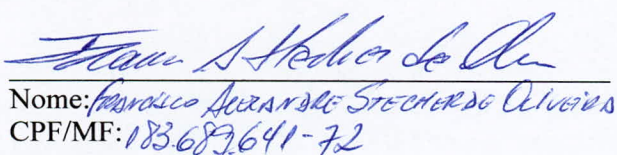 Nome: Francisco Alexandre Stecher de Oliveira
CPF/MF: 183.689.641-72